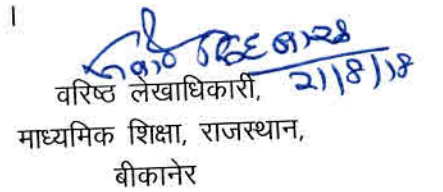 ।
21/8/18
वरिष्ठ लेखाधिकारी,
माध्यमिक शिक्षा, राजस्थान,
बीकानेर